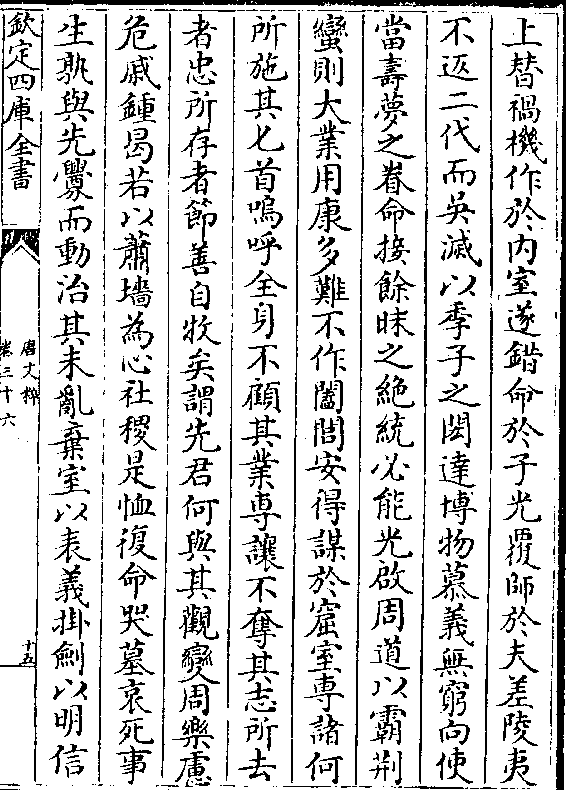 上替禍機作於內室遂錯命於子光覆師於夫差陵夷
不返二代而吳滅以季子之閎達博物慕義無窮向使
當壽夢之眷命接餘昧之絶統必能光啟周道以霸荆
蠻則大業用康多難不作闔閭安得謀於窟室專諸何
所施其匕首嗚呼全身不顧其業専讓不奪其志所去
者忠所存者節善自牧矣謂先君何與其觀變周樂慮
危戚鍾曷若以蕭墻為心社稷是恤復命哭墓哀死事
生孰與先釁而動治其未亂棄室以表義掛劍以明信
欽定四庫全書
唐文粹
卷三十六
十五